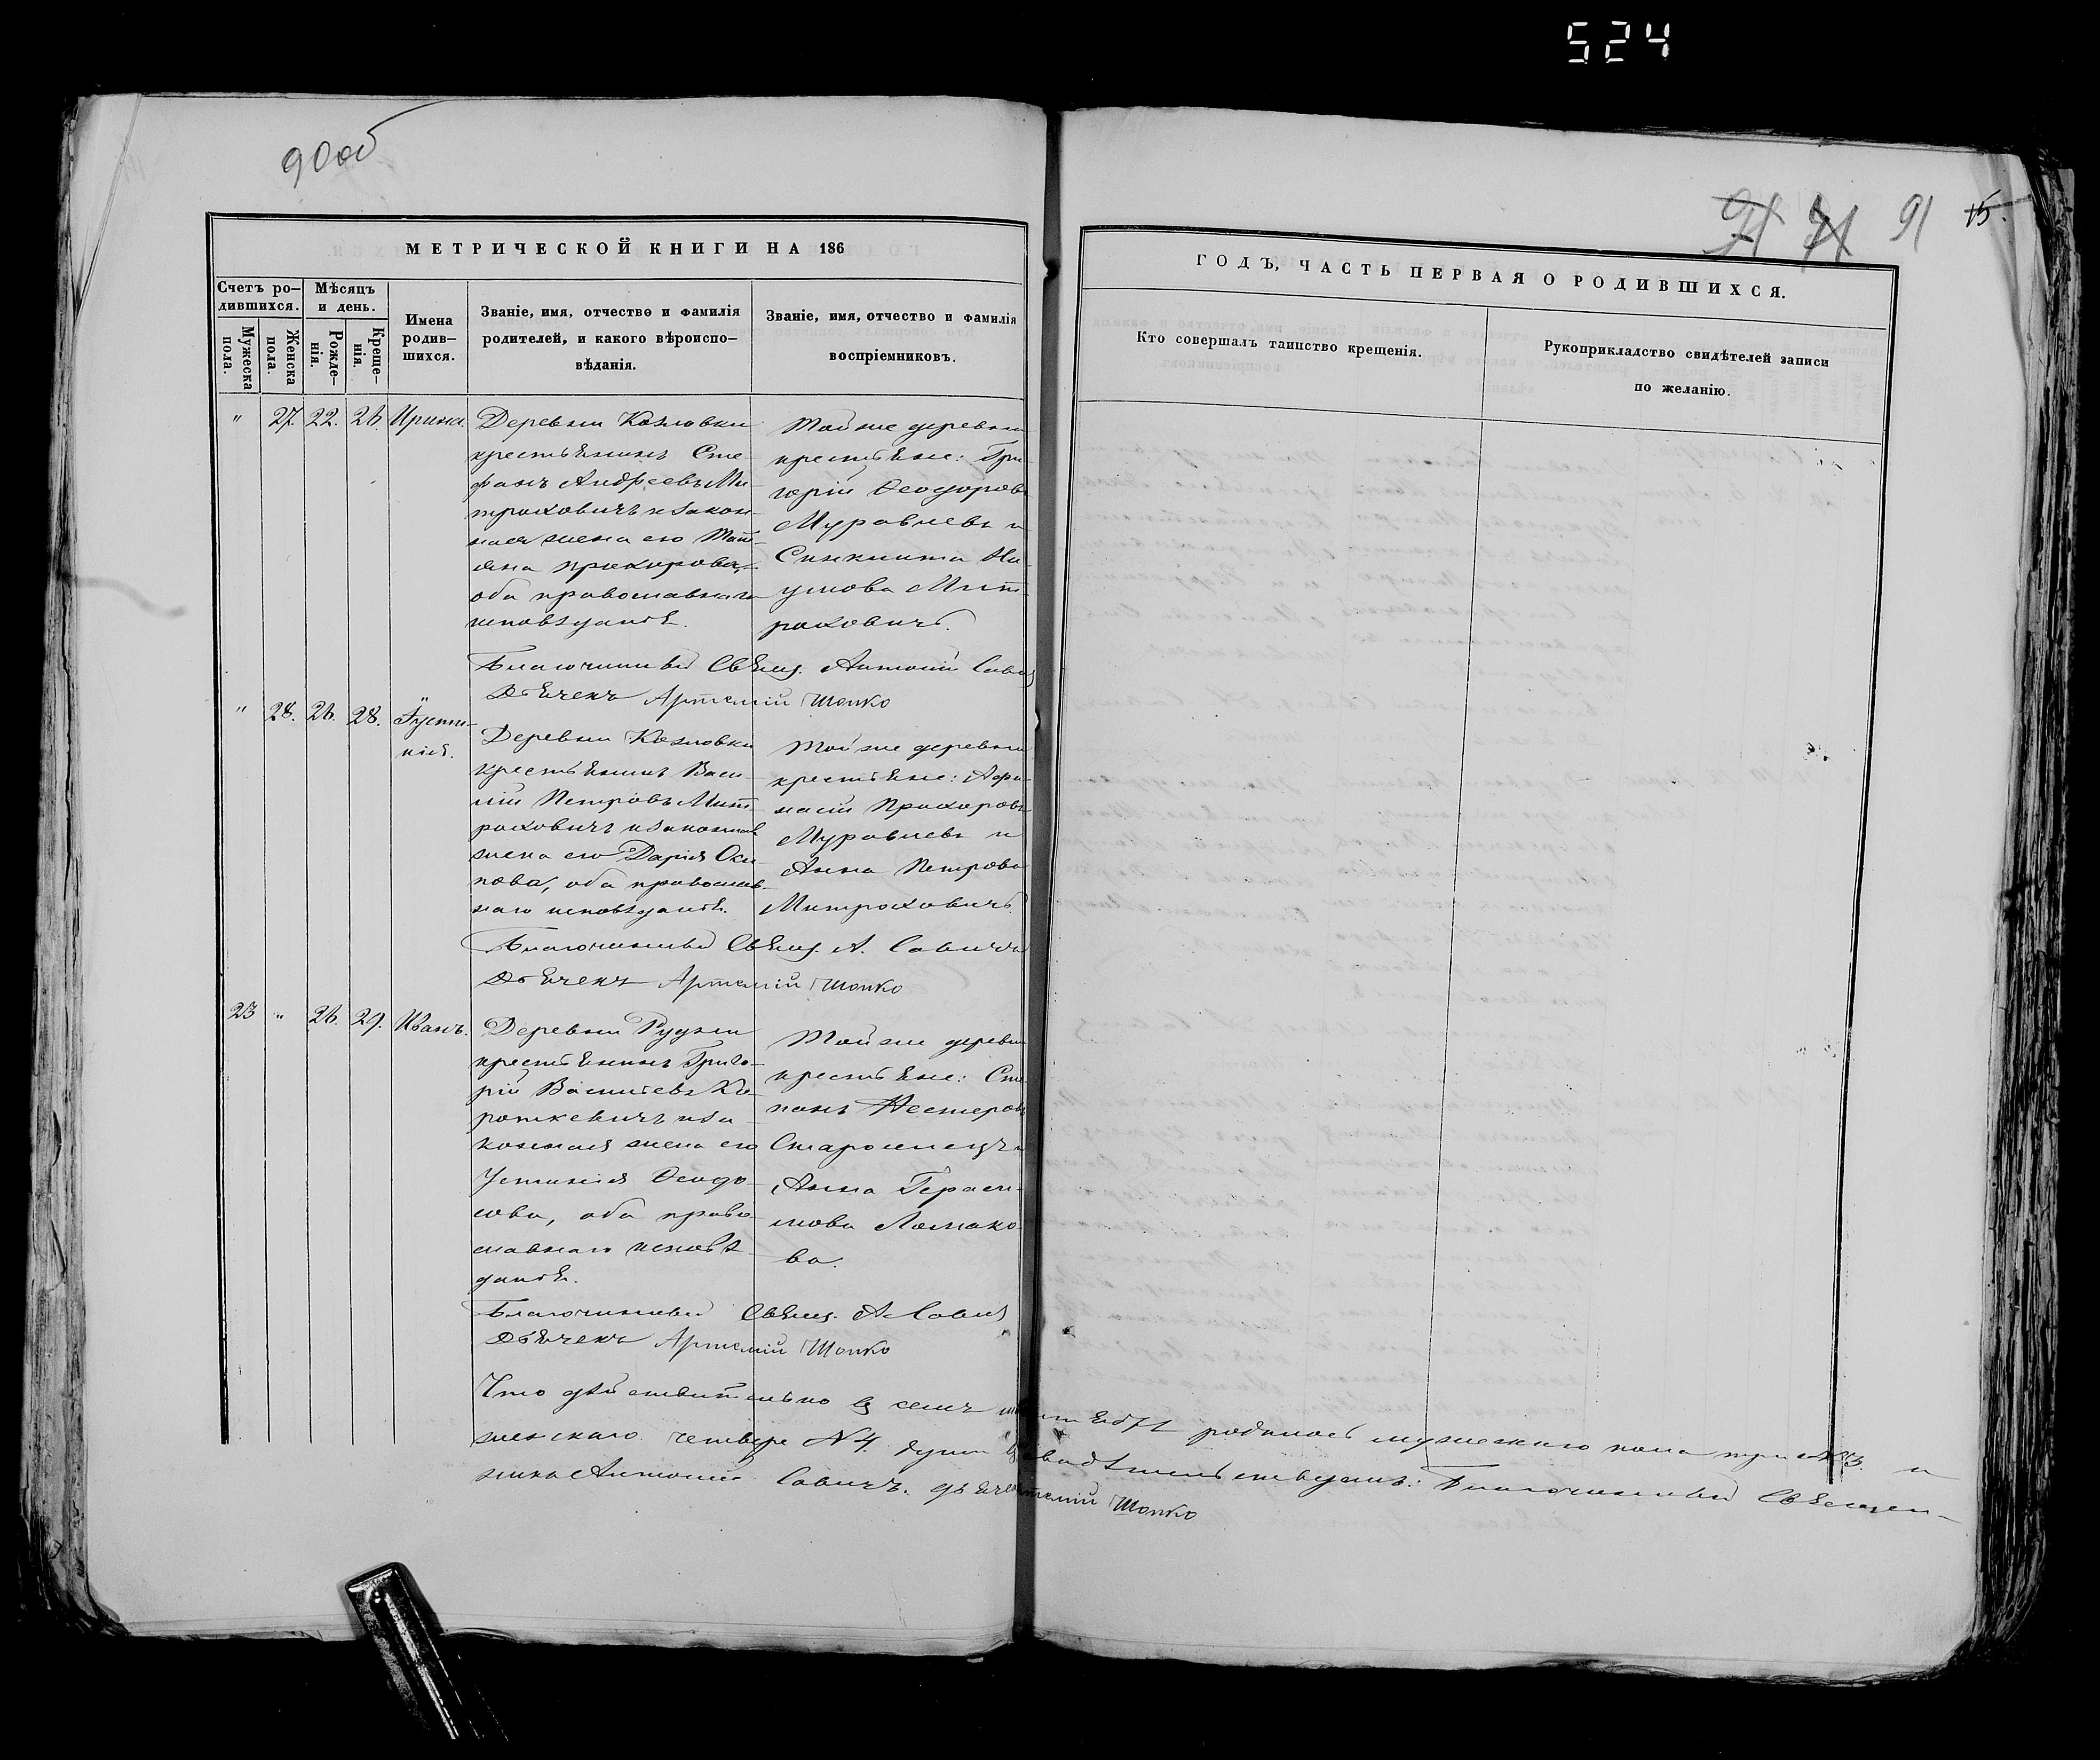 524
90 об
91 15.
МЕТРИЧЕСКОЙ КНИГИ НА 186
ГОДЪ, ЧАСТЬ ПЕРВАЯ О РОДИВШИХСЯ.
Счетъ ро-
дившихся.
Мужеска
пола.
Женска
пола.
Мѣсяцъ
и день.
Рожде-
нія.
Креще-
нія.
Имена
родив-
шихся.
Званіе, имя, отчество и фамилія
родителей, и какого вѣроиспо-
вѣданія.
Званіе, имя, отчество и фамилія
воспріемниковъ.
Кто совершалъ таинство крещенія.
Рукоприкладство свидѣтелей записи
по желанію.
" 27. 22. 26. Ирина.
Деревни Козловки
крестьянинъ Сте-
фанъ Андреевъ Ми-
троховичъ и закон-
ная жена его Тать-
яна Прохорова,
оба православнаго
исповѣданія.
Той же деревни
крестьяне: Гри-
горій Ѳеодоровъ
Муравьевъ и
Синклита На-
умова Мит-
роховичъ.
Благочинный Священ. Антоній Савич
Дьячекъ Артемій Шопко
" 28. 26. 28. Іусти-
нія.
Деревни Козловки
крестьянинъ Васи-
лій Петровъ Мит-
роховичъ и законная
жена его Дарія Оси-
пова, оба православ-
наго исповѣданія.
Той же деревни
крестьяне: Афа-
насій Прохоровъ
Муравьевъ и
Анна Петрова
Митроховичъ.
Благочинный Священ. А. Савичъ
Дьячекъ Артемій Шопко
23 " 26. 29. Иванъ.
Деревни Рудни
крестьянинъ Григо-
рій Васильевъ Ко-
роткевичъ и за-
конная жена его
Устинія Ѳеодо-
сова, оба право-
славнаго исповѣ-
данія.
Той же деревни
крестьяне: Сте-
панъ Нестеровъ
Старо
Анна Гераси-
мова Ломако-
ва.
Благочинный Священ. А. Савич
Дьячекъ Артемій Шопко
Что дѣйствительно въ семъ родилось мужескаго пола три №3. и
женскаго четыре №4 души свидѣтельствуемъ: Благочинный Священ-
никъ Антоній Савичъ. дьячекъ Артемій Шопко